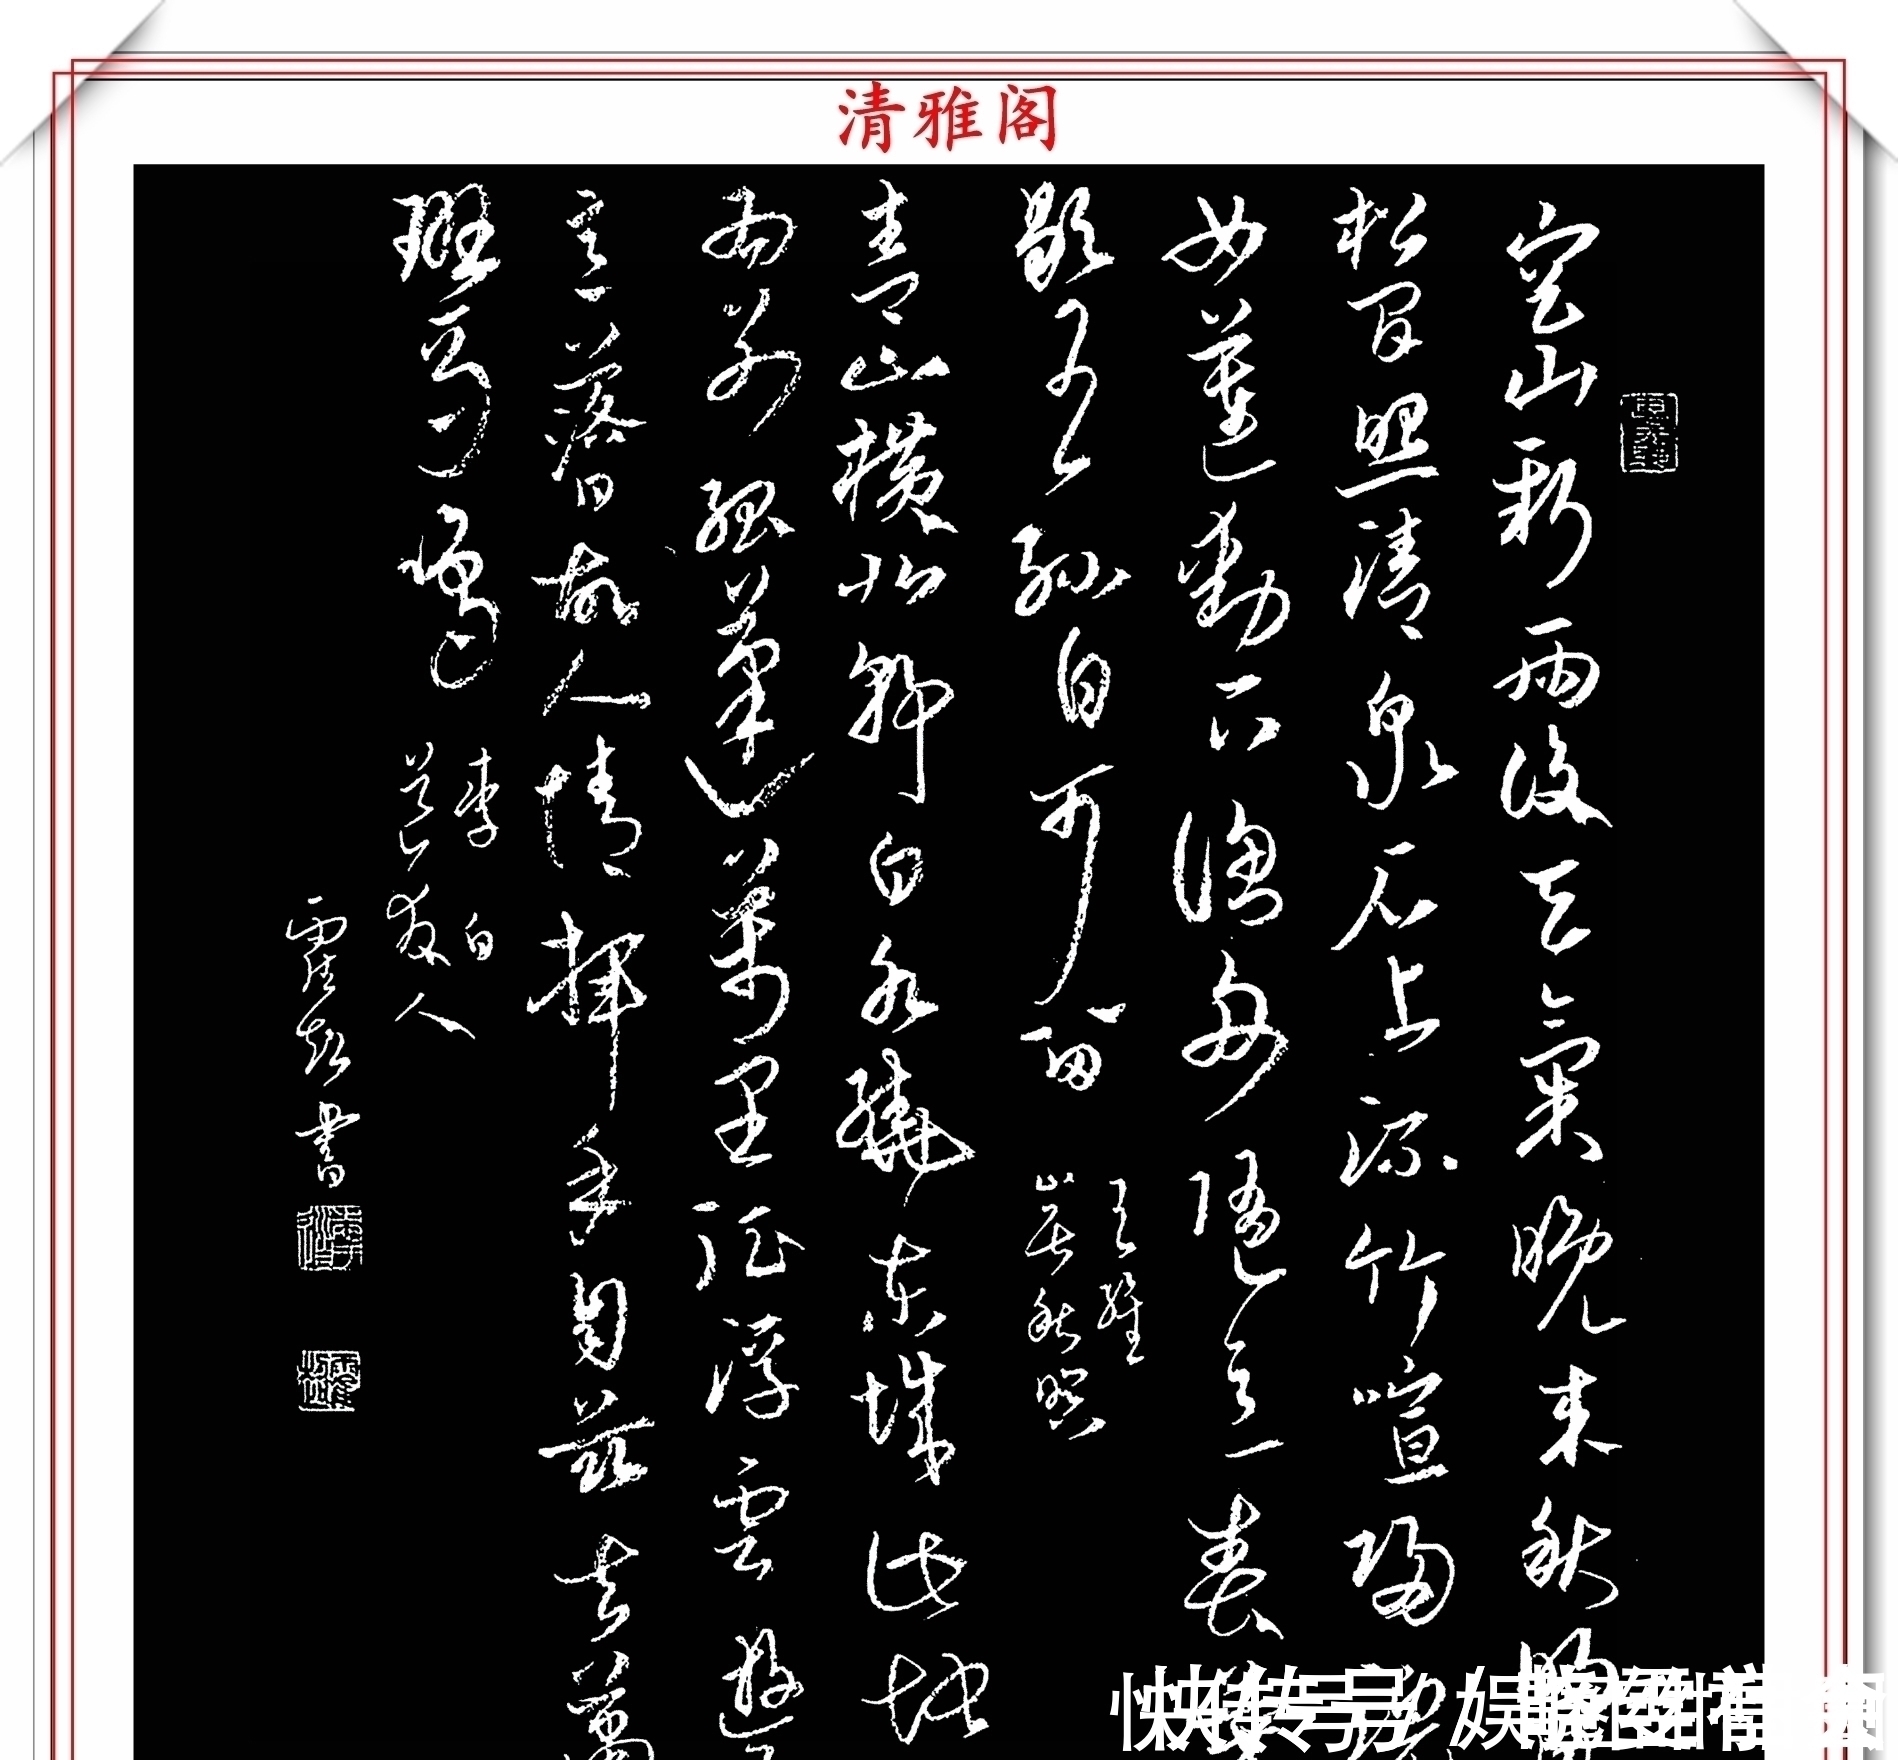 清雅阁
空山新雨后天气晚来秋明
松间照清泉石上流竹喧归
女莲动下渔舟随意春
歇王孙自可留
王维
山居秋暝
青山横北郭白水绕东城此地
为别孤蓬万里征浮云游
意落日故人情挥手自兹去萧
班马鸣
李白
送友人
霍超书
快传号